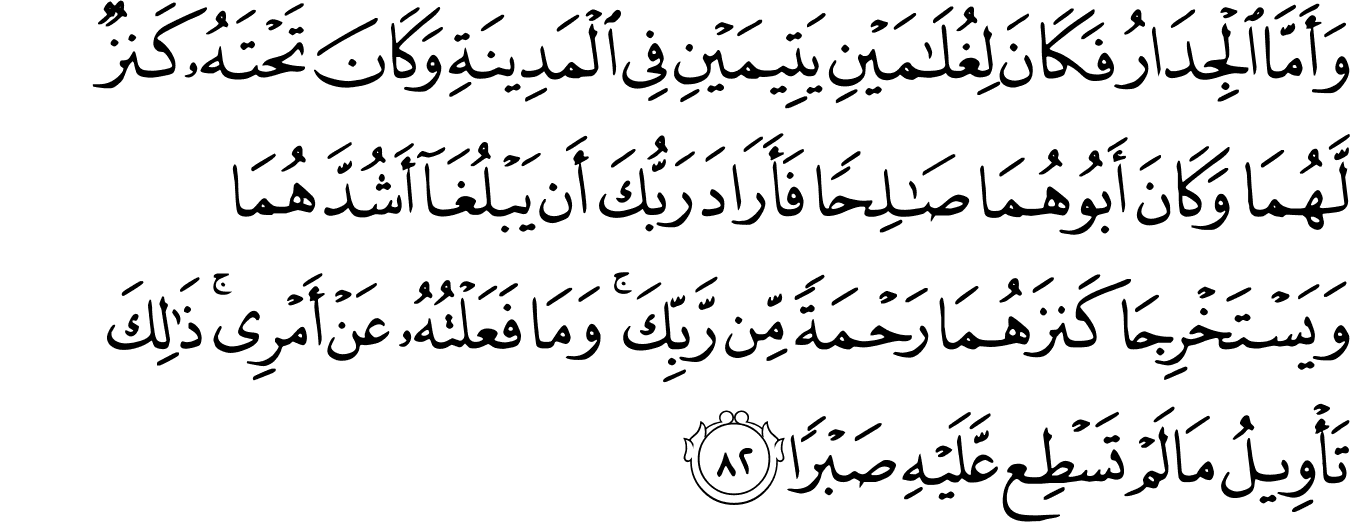 وَأَمَّا ٱلْجِدَارُ فَكَانَ لِغُلَـٰمَيْنِ يَتِيمَيْنِ فِى ٱلْمَدِينَةِ وَكَانَ تَحْتَهُۥ كَنزٌ
لَّهُمَا وَكَانَ أَبُوهُمَا صَـٰلِحًا فَأَرَادَ رَبُّكَ أَن يَبْلُغَآ أَشُدَّهُمَا
وَيَسْتَخْرِجَا كَنزَهُمَا رَحْمَةً مِّن رَّبِّكَ ۚ وَمَا فَعَلْتُهُۥ عَنْ أَمْرِى ۚ ذَٰلِكَ
تَأْوِيلُ مَا لَمْ تَسْطِع عَّلَيْهِ صَبْرًا ٨٢